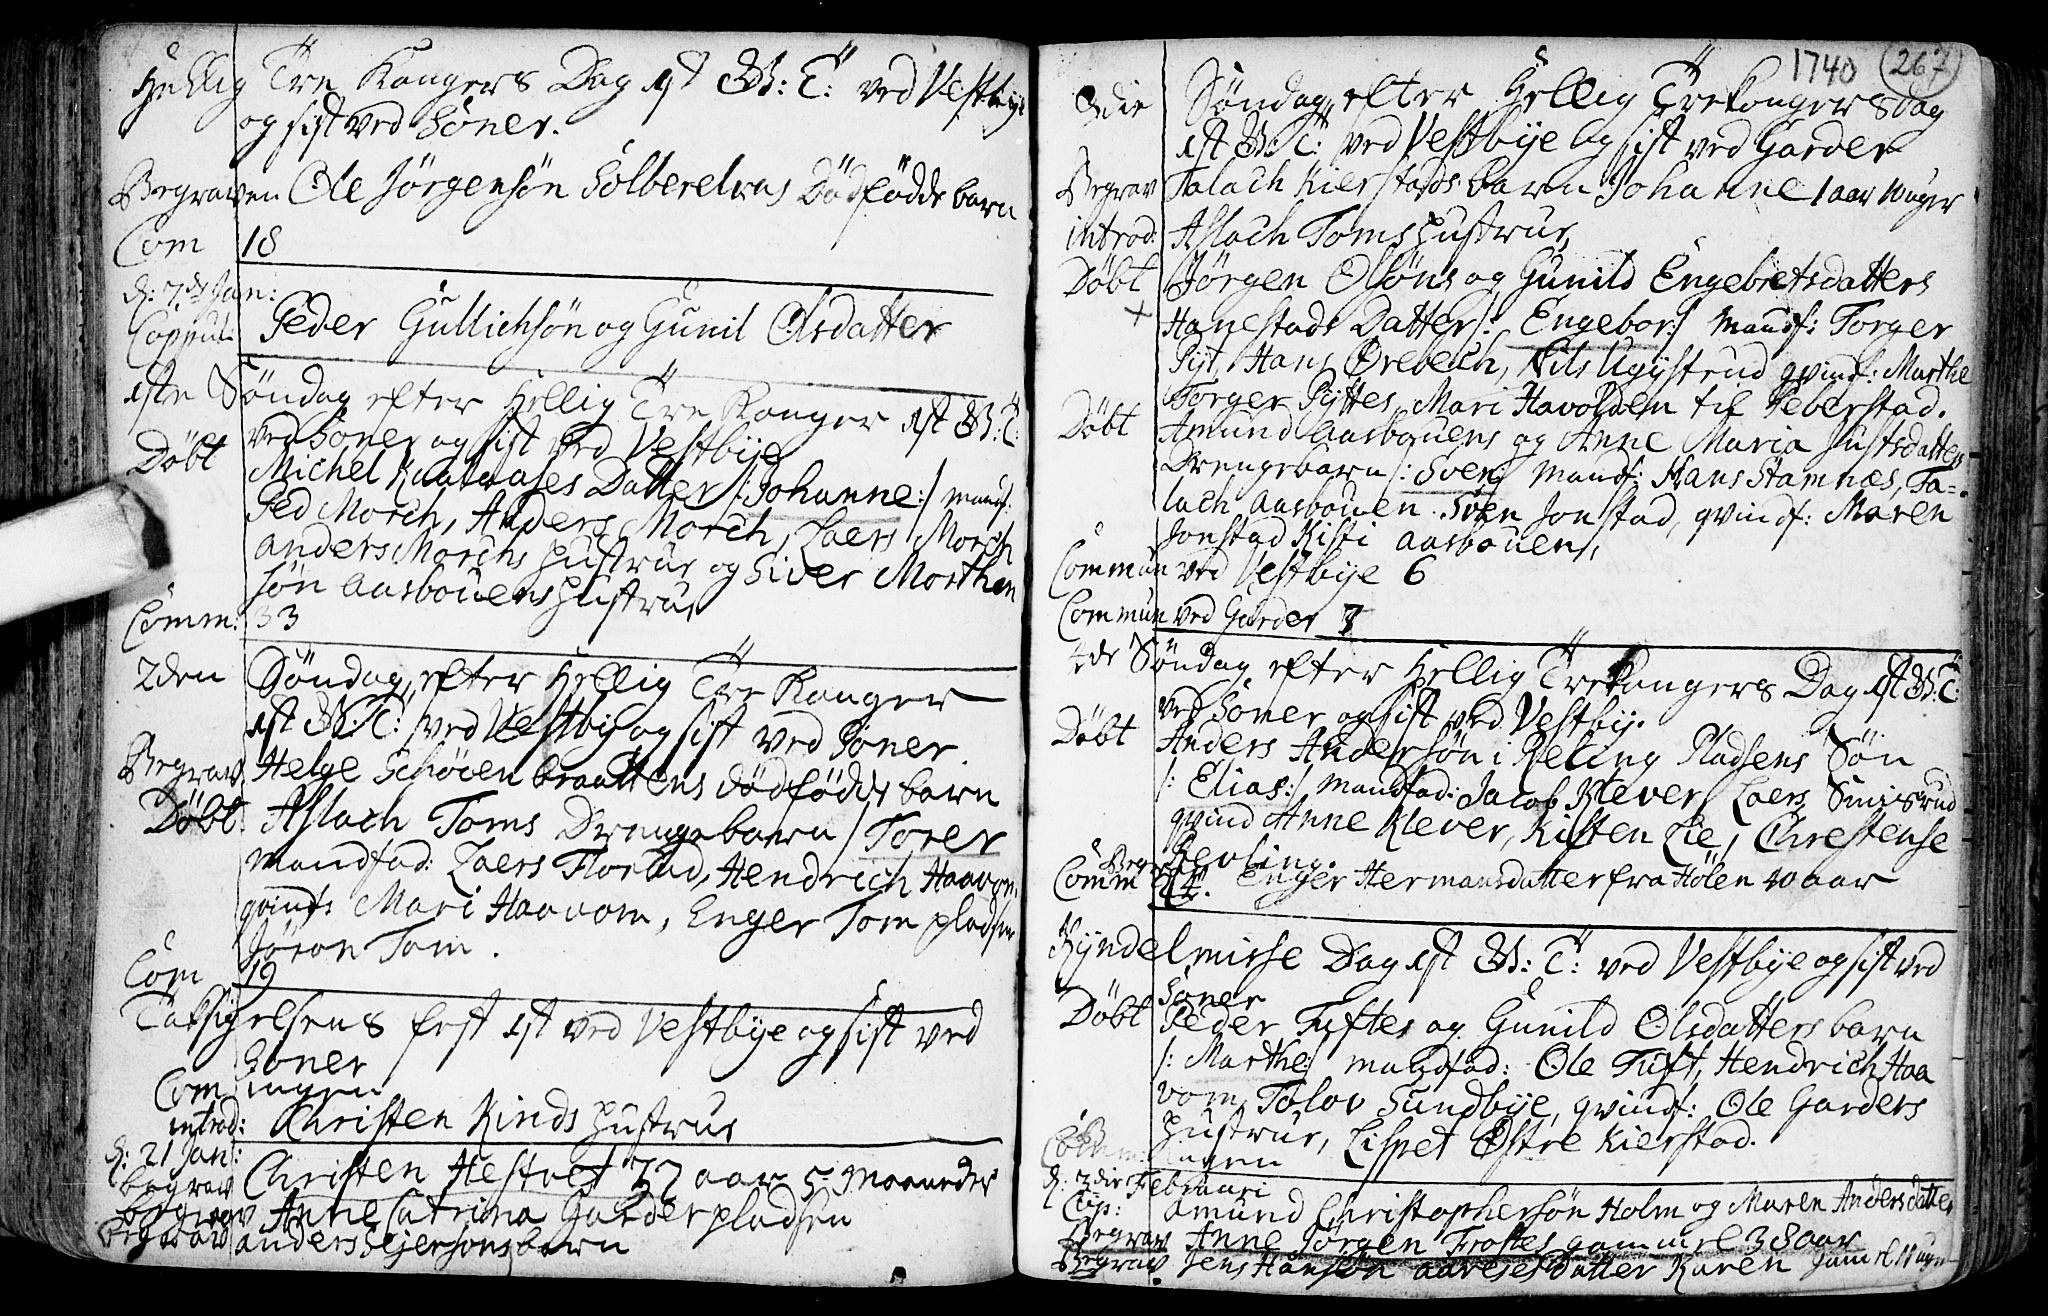 Hellig Tre Kongers Dag 1st G: T: ved Vestbye
og sist ved Soner.
Begraven Ole Jörgensön Solberelvas Dödfödde barn
Com 18
d: 7de Jan:
Copul: Peder Gullichsön og Gunil Olsdatter
1ste Söndag efter Hellig Tre Konger 1st G: T:
ved Soner og sist ved Vestbye
Döbt Michel Kaataases Datter /: Johanne :/ mandf:
Ped Morch, Anders Morch, Laers Morch
Anders Morchs Hustrue og Siver Morthen
sön Aasbouens Hustrue
Comm: 33
2den Söndag efter Hellig Tre Konger
1st G: T: ved Vestbye og sist ved Soner
Begrav Helge Schöien braattens dödfödde barn
Döbt: Aslach Toms Drengebarn /: Torer
Mandfad: Laers Florstad, Hendrich Haavom
qvindf: Mari Haavom, Enger Tom pladsen
Jöron Tom.
Com 19
Taksigelsens fest 1st ved Vestbye og sist ved
Soner
Com ingen
introd: Christen Kinds Hustrue
d: 21 Jan:
begrav Christen Hestvet 37 aar 5 Maaneder
begrav Anne Catrina Garder pladsen
Begrav Anders Sejersöns barn
1740 267
3die Söndag efter Hellig Trekongersdag
1st G: T: ved Vestbye og sist ved Garder
Begrav Talach Kierstads barn Johanne 1 aar 10 uger
introd: Aslach Toms Hustrue
Döbt Jörgen Olsöns og Gunild Engebretsdatters
+ Hanestads Datter /: Engebor :/ Mandf: Torger
Pyt, Hans Örebech, Nils Ugystrud qvindf: Marthe
Torger Pyttes, Mari Havolden til Heberstad.
Döbt Amund Aasbouens og Anne Maria Justsdatters
Drengebarn /: Sven: Mandf: Hans Stamnæs, Ta=
lach Aasbouen. Sven Jonstad, qvindf: Maren
Jonstad Kisti Aasbouen,
Commun ved Vestbye 6
Commun ved Garder 7
4de Söndag efter Hellig Trekongers Dag 1st G: T:
ved Soner og sist ved Vestby.
Döbt Anders Andersön i Reling Pladsens Sön
/: Elias :/ Mandfad: Jacob Klever, Laers Smisrud
qvind Anne Klever, Kisten Lie, Christense
Revling.
Begr Enger Hermansdatter fra Hölen 10 aar
Comm 14.
Kyndelmisse Dag 1st G: T: ved Vestbye og sist ved
Soner
Döbt Peder Tuftes og Gunild Olsdatters barn
/: Marthe :/ mandfad: Ole Tuft, Hendrich Haa
vom, Tolov Sundbye, qvindf: Ole Garders
Hustrue, Lispet Östre Kierstad.
Comm: Ingen
d: 3die Februari
Cop: Amund Christophersön Holm og Maren Andersdatter
Begrav Anne Jörgen Trostes gammel 38 aar
Begrav Jens Hansön Aareses datter Karen gam el 11 uger